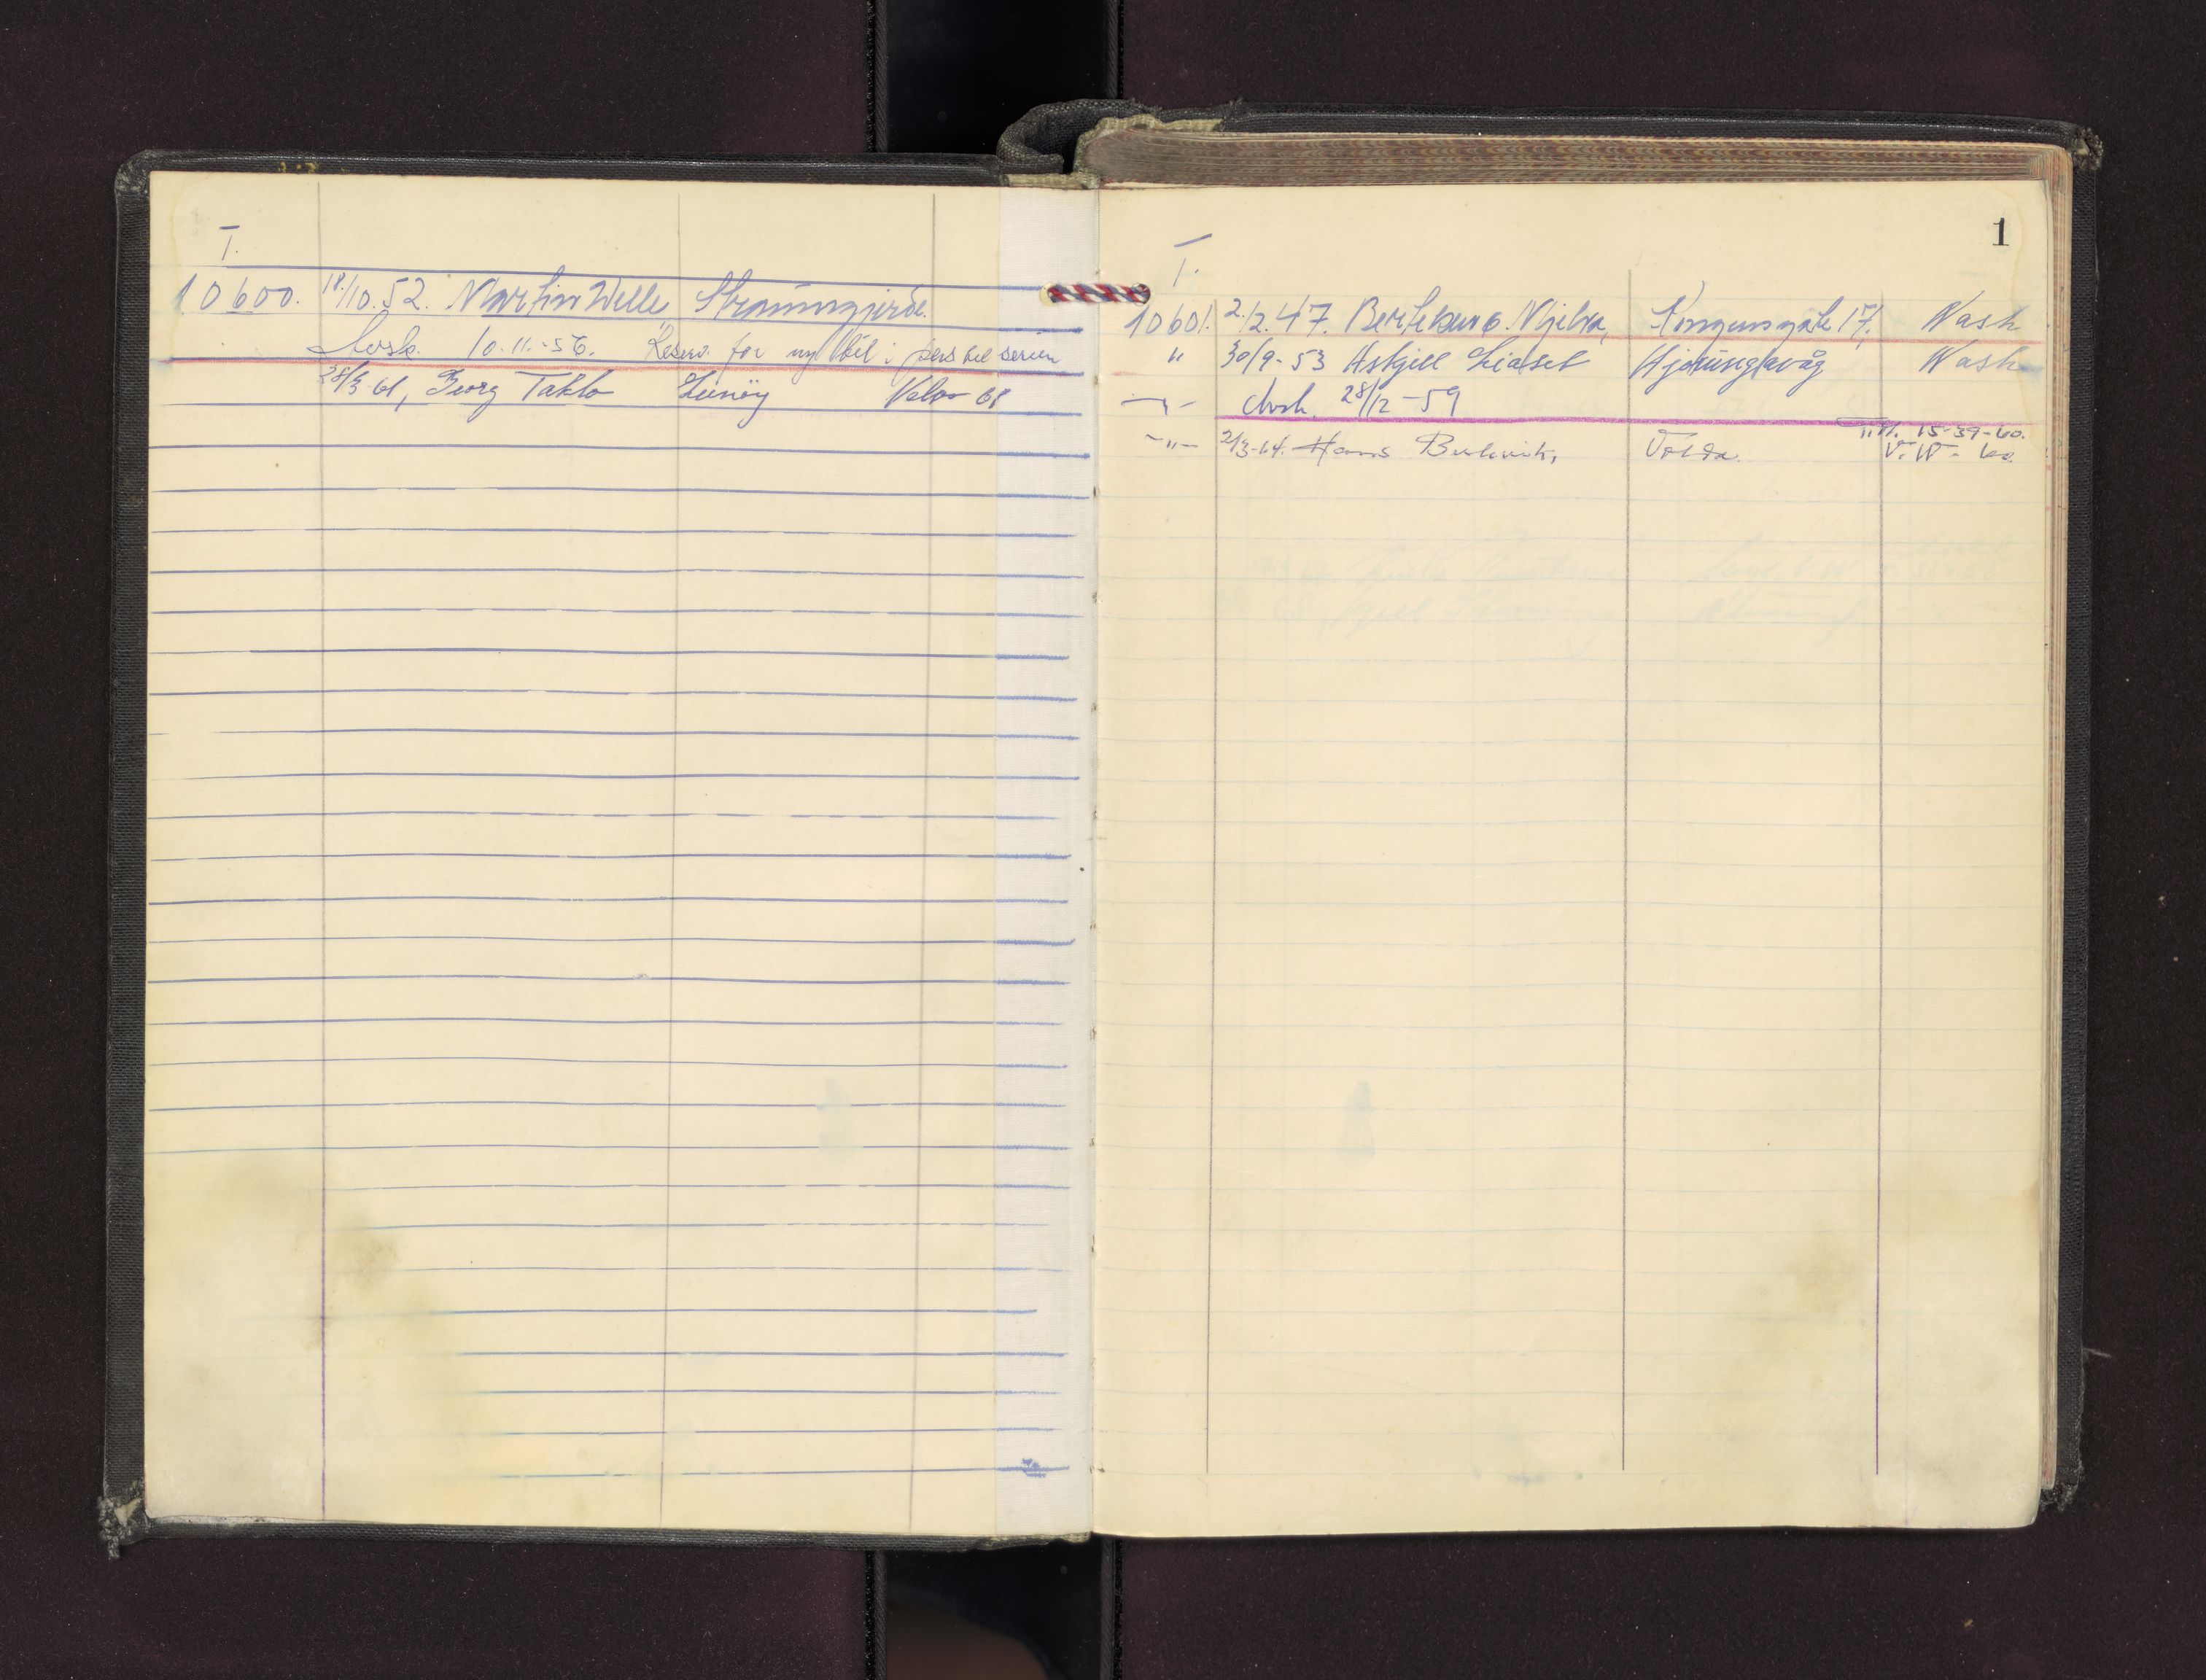 T.
10600. 18/10.52. Martin Welle Straumgjerde.
Avsk. 10.11.-56. Reserv. for ny bil i pers bil serien
28/3-61, Georg Taklo Leinöy Velos 61
1
T.
10601. 2/2.47. Kongensgate 17, Vash
" 30/9-53 Askjell Liaset Hjørungavåg Vash
Avsk. 28/12-59
-"- 2/3-64. Hans Volda. 15-39-60.
V.W.- 60.